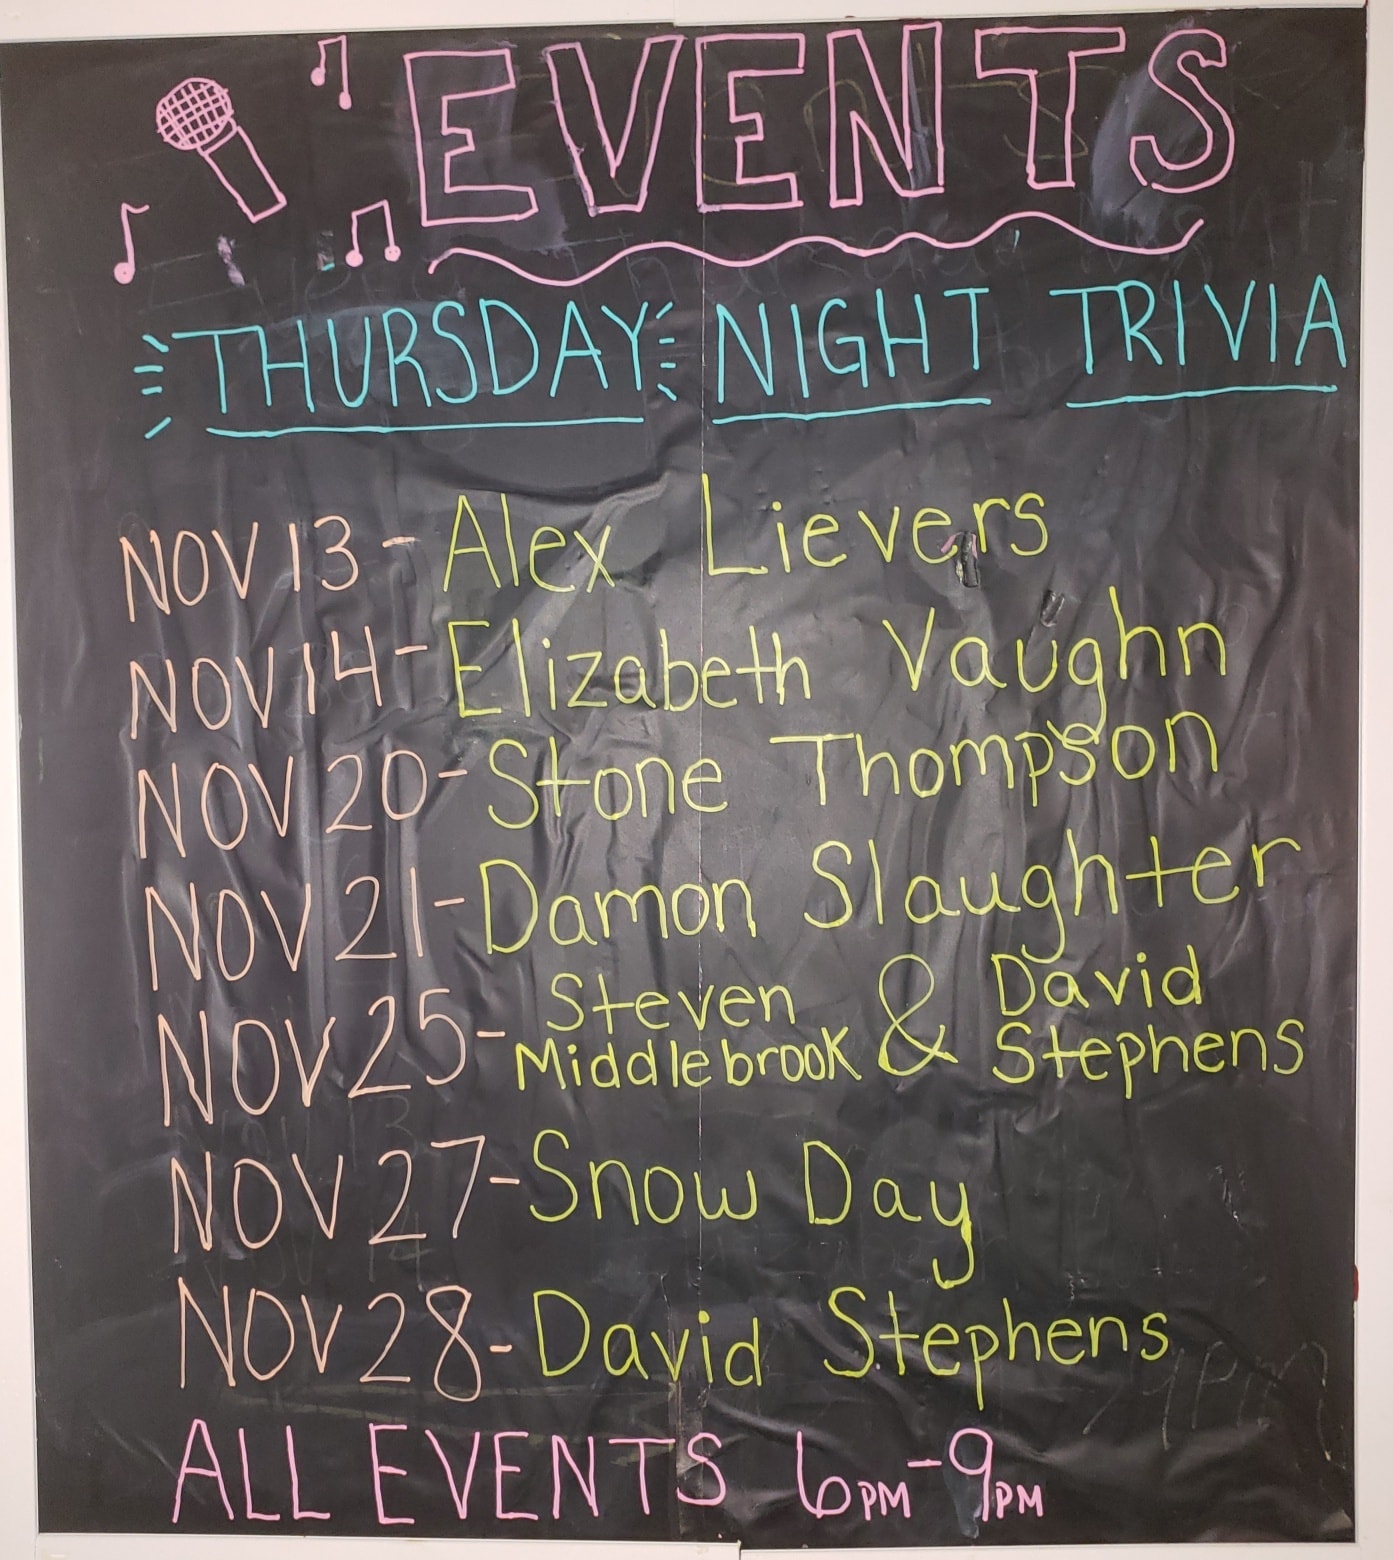 EVENTS
THURSDAY NIGHT TRIVIA
NOV 13 - Alex Lievers
NOV 14 - Elizabeth Vaughn
NOV 20 - Stone Thompson
NOV 21 - Damon Slaughter
NOV 25 - Steven Middlebrook & David Stephens
NOV 27 - Snow Day
NOV 28 - David Stephens
ALL EVENTS 6PM - 9PM